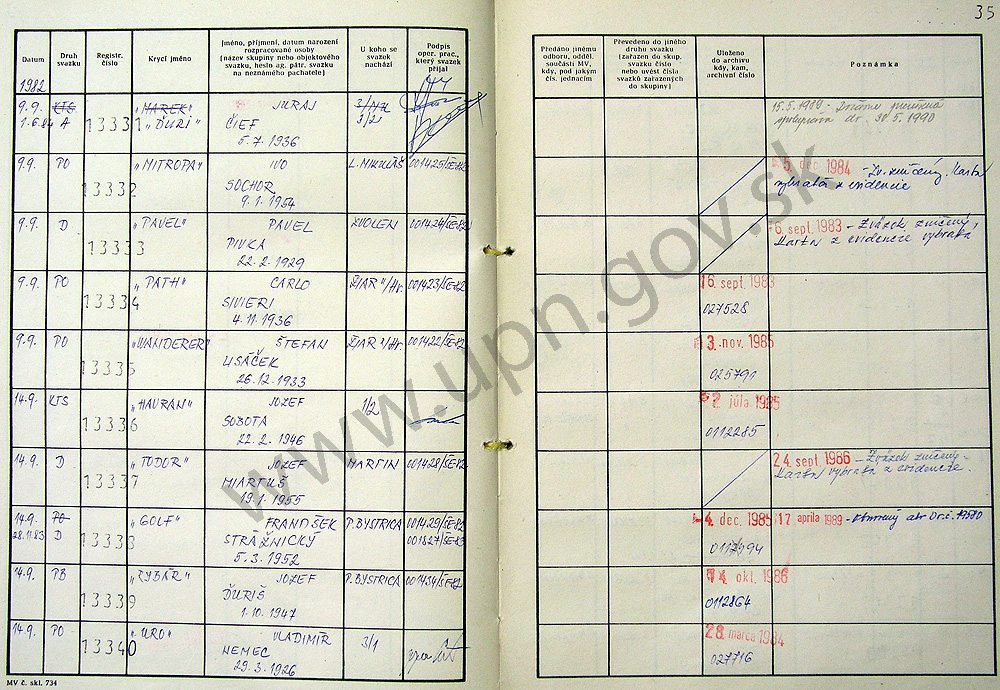 35
Datum
Druh svazku
Registr. číslo
Krycí jméno
Jméno, příjmení, datum narození rozpracované osoby (název skupiny nebo objektového svazku, heslo ag. pátr. svazku na neznámého pachatele)
U koho se svazek nachází
Podpis oper. prac., který svazek přijal
Předáno jinému odboru, odděl. součásti MV, kdy, pod jakým čís. jednacím
Převedeno do jiného druhu svazku (zařazen do skup. svazku číslo nebo uvést čísla svazků zařazených do skupiny)
Uloženo do archivu kdy, kam, archivní číslo
Poznámka
1982
9.9. KTS "MAREK" JURAJ
1.6.84 A 13331 "ĎURI" ČIEF 3/21
5.7.1936
15.5.1989
30.5.1990
9.9. PO "MITROPA" IVO L. MIKULÁŠ 001425/ŠE-82
13332 SOCHOR
9.1.1954
5. dec. 1984 - Zv. zničený. Karta
vybratá z evidencie
9.9. D "PAVEL" PAVEL ZVOLEN 001424/ŠE-82
13333 PIVKA
22.2.1929
6. sept. 1983 - Zväzok zničený,
Karta z evidencie vybratá,
9.9. PO "PATH" CARLO ŽIAR n/Hr. 001423/ŠE-82
13334 SIVIERI
4.11.1936
16. sept. 1983
027528
9.9. PO "WANDERER" ŠTEFAN ŽIAR n/Hr. 001422/ŠE-82
13335 LISÁČEK
26.12.1933
3. nov. 1985
025791
14.9. KTS "HAVRAN" JOZEF 1/2
13336 SOBOTA
22.2.1946
2. júla 1985
0112285
14.9. D "TODOR" JOZEF MARTIN 001428/ŠE-82
13337 MIARTUŠ
19.1.1955
24. sept. 1986 - Zväzok zničený -
Karta vybratá z evidencie.
14.9. PO "GOLF" FRANTIŠEK P. BYSTRICA 001429/ŠE-82
28.11.83 D 13338 STRÁŽNICKÝ 001827/ŠE-83
5.3.1952
4. dec. 1985 17. apríla 1989
14.9. PB "RYBÁR" JOZEF P. BYSTRICA 001434/ŠE-82
13339 ĎURIŠ
1.10.1947
14. okt. 1986
0112864
14.9. PO "URO" VLADIMÍR 3/1
13340 NEMEC
29.3.1926
28. marca 1984
027716
MV č. skl. 734
www.upn.gov.sk